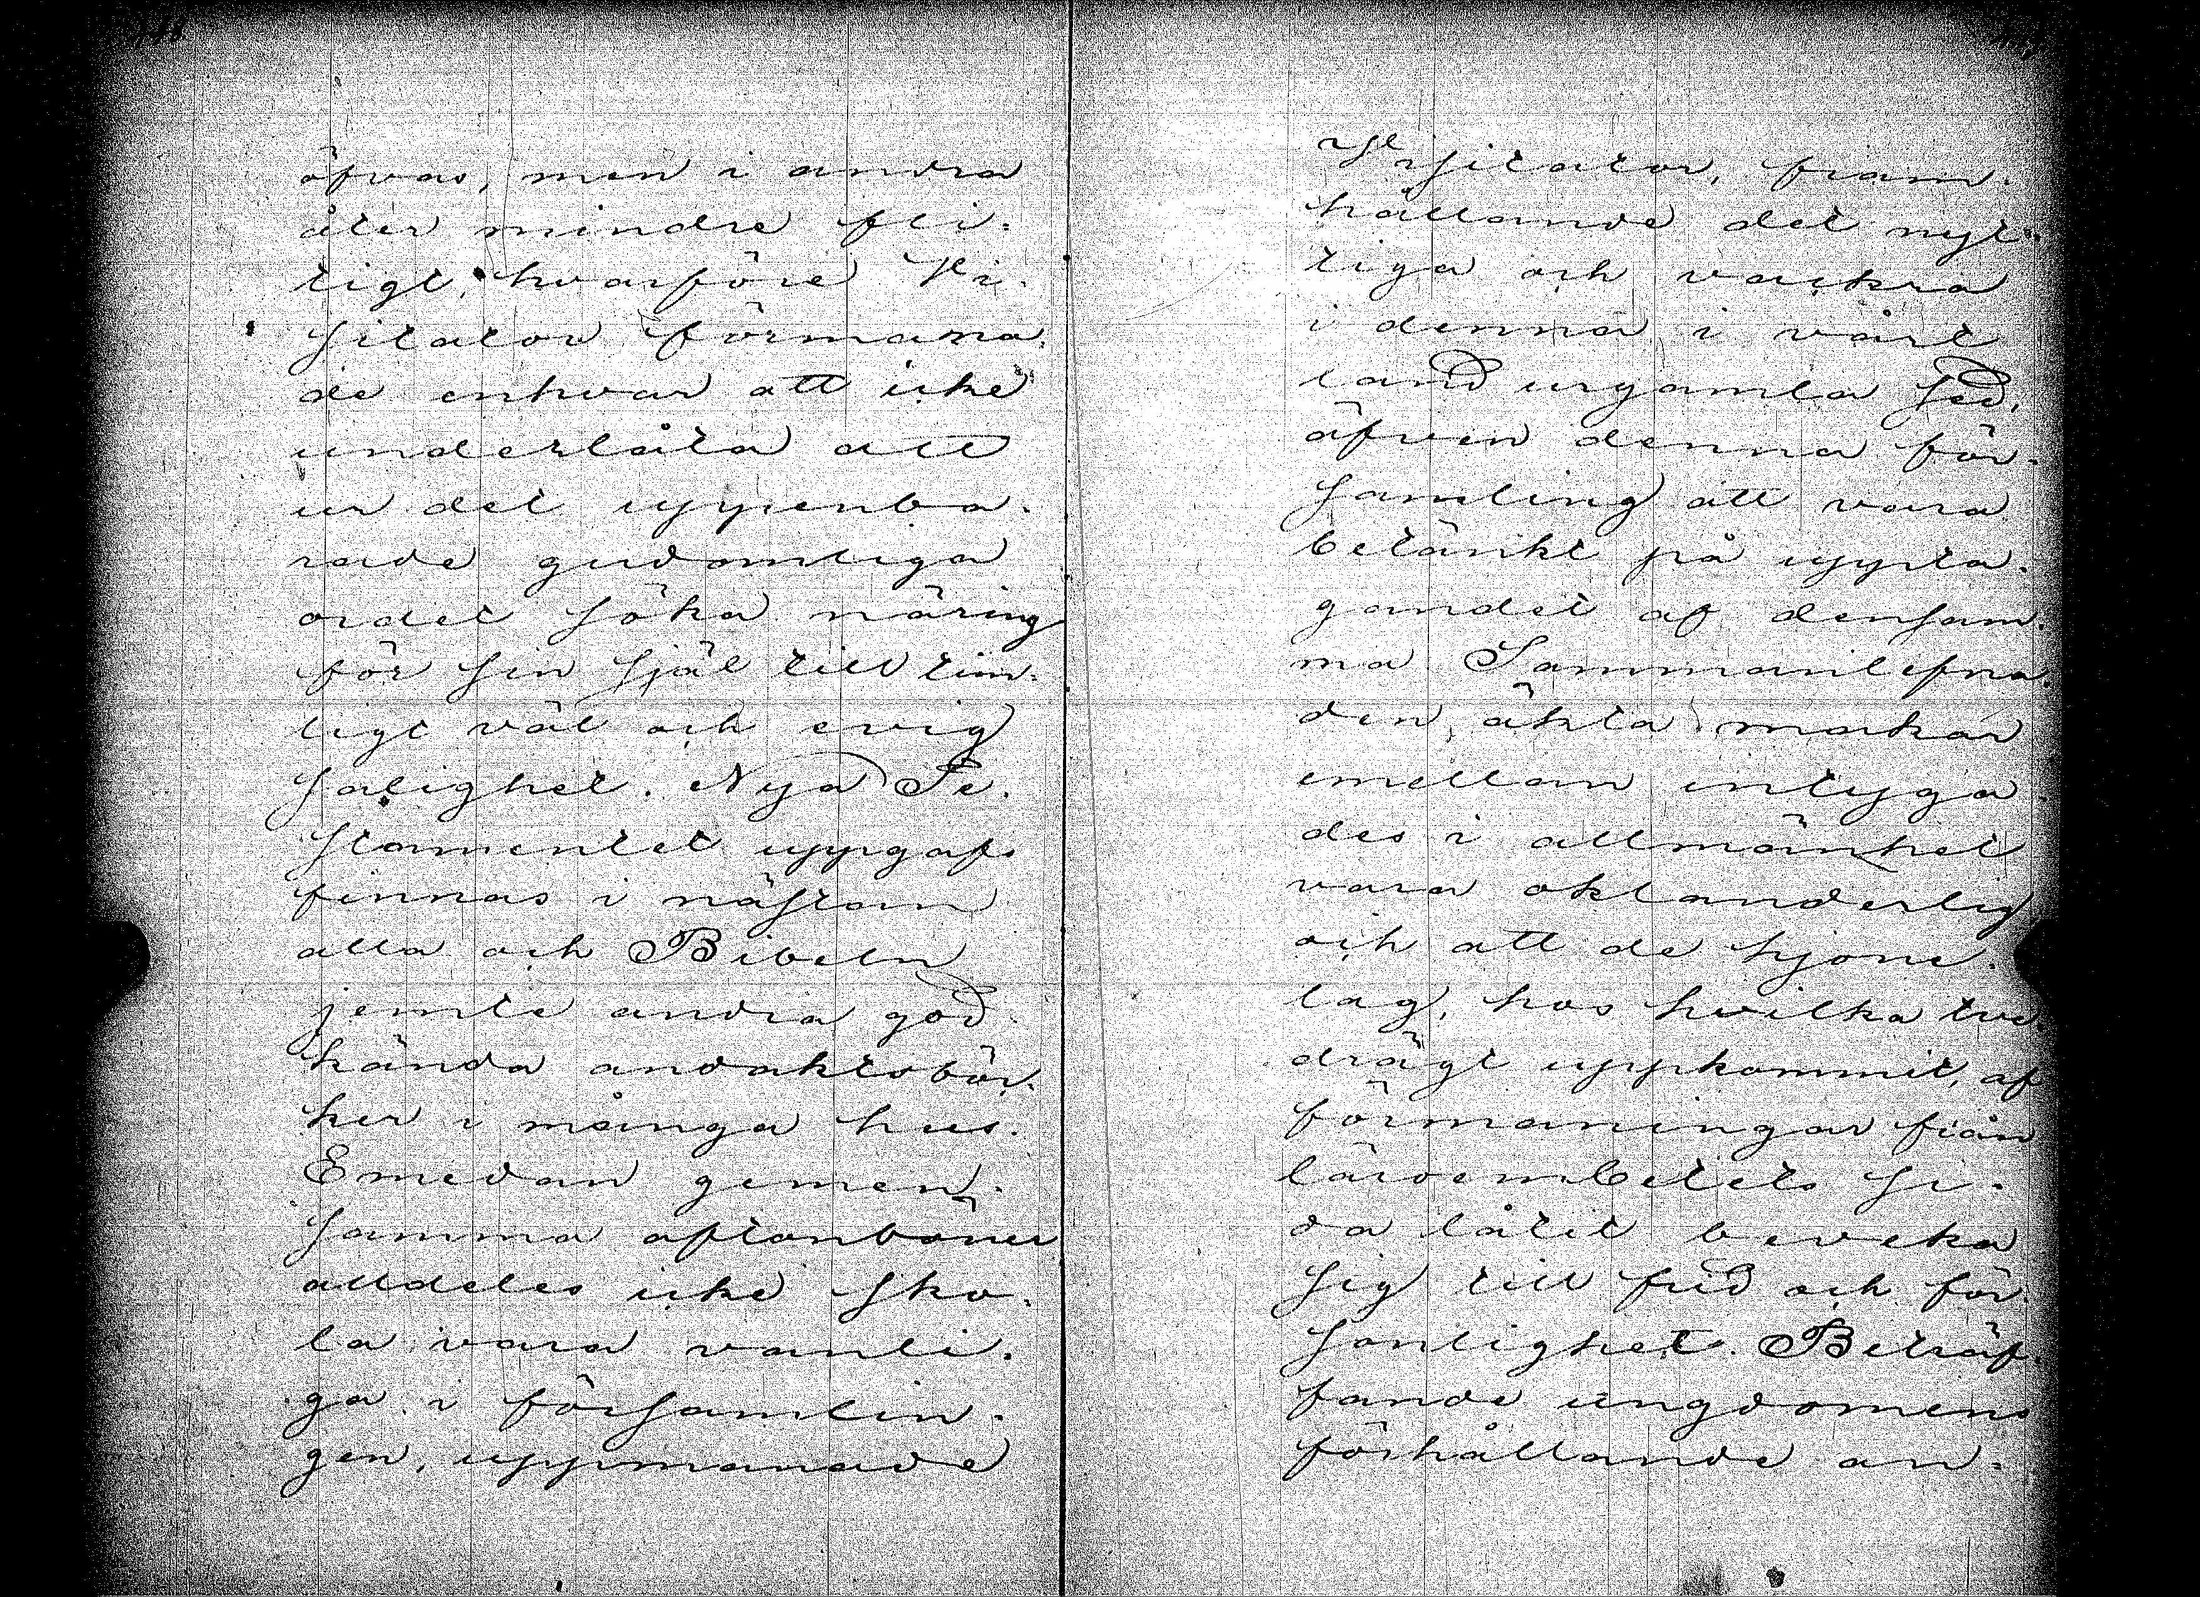 öfvas, men i andra
åter mindre fli-
tigt, hvarföre Vi-
sitator förmana-
de enhvar att icke
underlåta att
ur det uppenba-
rade gudomliga
ordet söka näring
för sin själ till tim-
ligt väl och evig
salighet. Nya Te-
stamentet uppgafs
finnas i nästan
alla och Bibeln
jemte andra god-
kända andaktsböc-
ker i många hus.
Emedan gemen-
samma aftonböner
alldeles icke sko-
la vara vanli-
ga i försmalin-
gen, uppmanade
Visitator, fram-
hållande det nyt-
tiga och vackra
i denna i vårt
land urgamla sed,
äfven denna för-
samling att vara
betänkt på uppta-
gandet af densam-
ma Sammanlefna-
den äkta makar
emellan intyga-
des i allmänhet
vara oklanderlig
och att de hjone-
lag, hos hvilka tve-
drägt uppkommit, af
förmaningar från
läroembetets si-
da låtit beveka
sig till frid och för-
sonlighet. Beträf-
fande ungdomens
förhållande an-